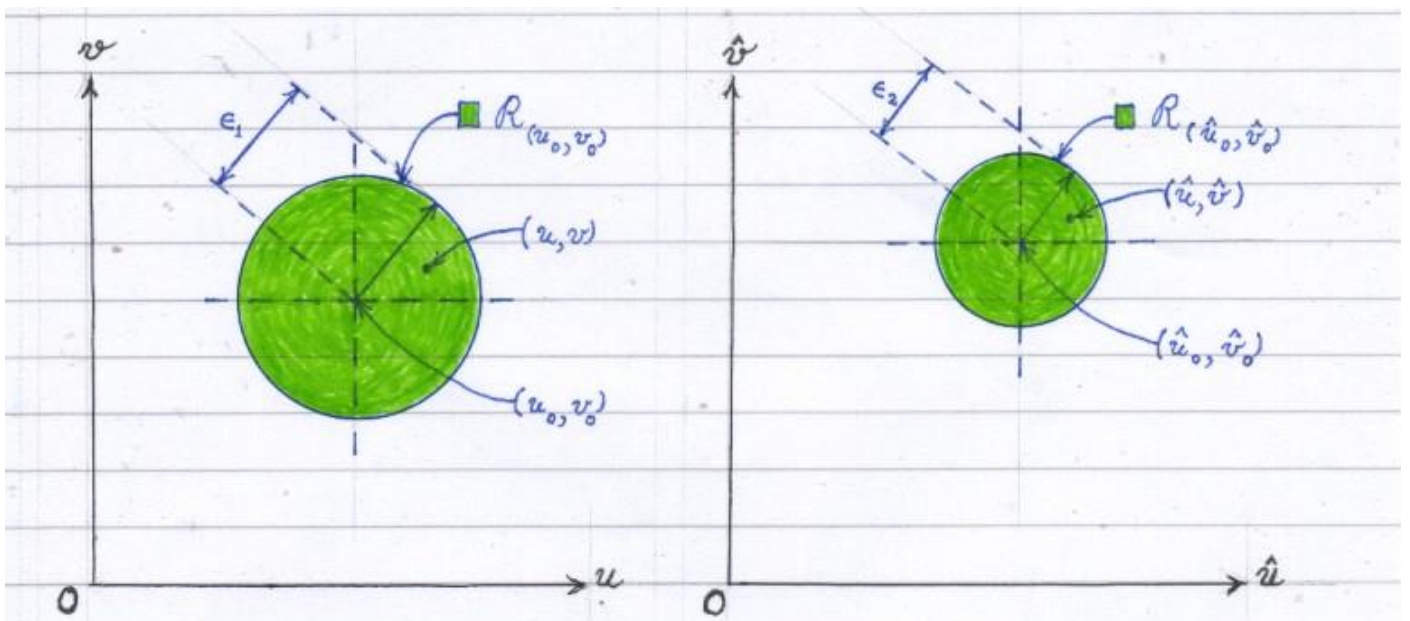 v
ϵ₁
R₍u₀,v₀₎
(u,v)
(u₀,v₀)
O
u
v̂
ϵ₂
R₍û₀,v̂₀₎
(û,v̂)
(û₀,v̂₀)
O
û